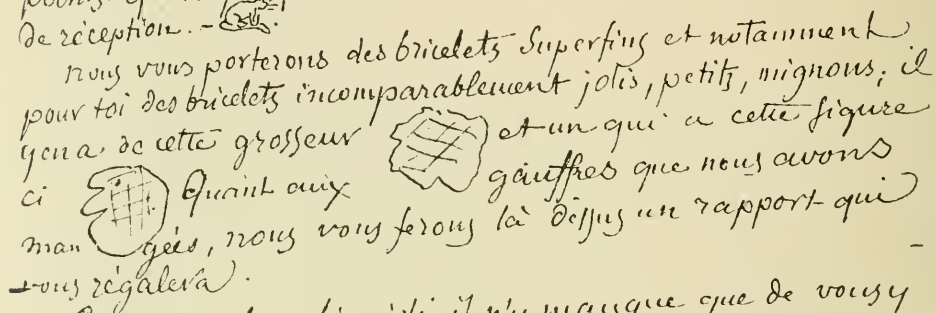 de réception. -
nous vous porterons des bricelets Superfins et notamment
pour toi des bricelets incomparablement jolis, petits, mignons; il
y en a de cette grosseur et un qui a cette figure
ci Quant aux gauffres que nous avons
mangées, nous vous ferons là dessus un rapport qui
vous régalera.
il n'y manque que de vous y